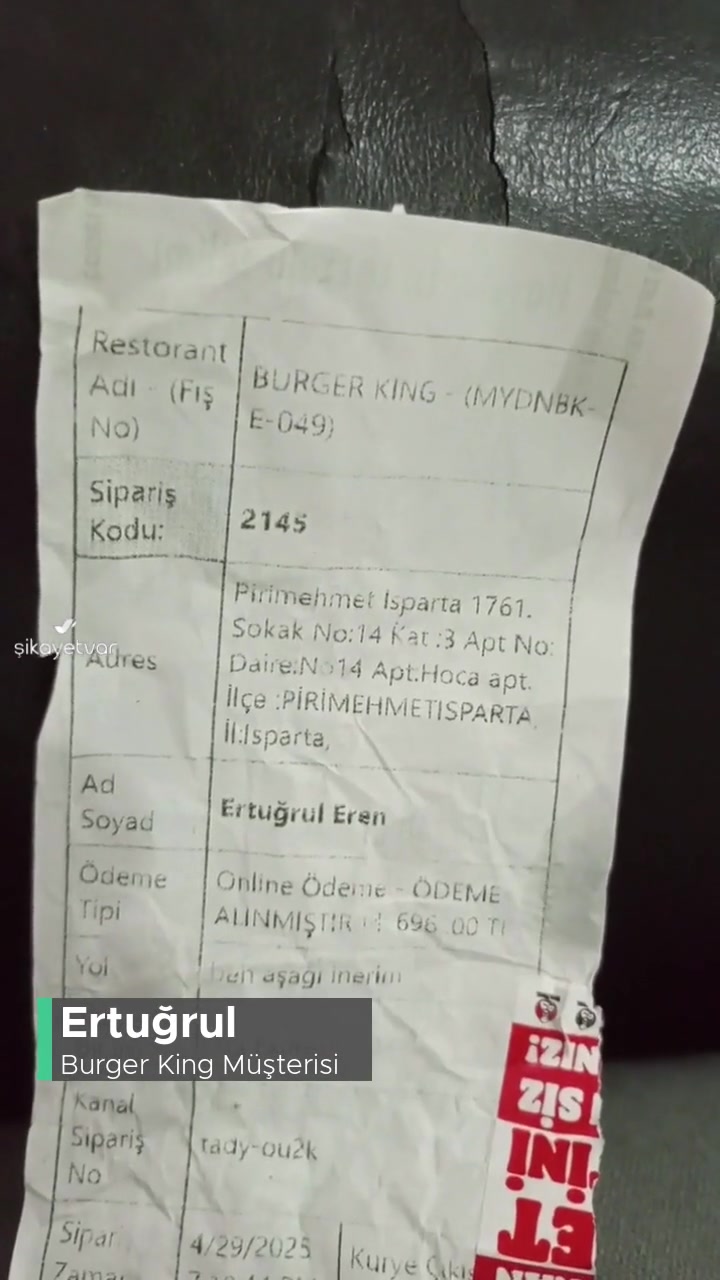 Restorant
Adı - (Fiş
No)
BURGER KING - (MYDNBK-
E-049)
Sipariş
Kodu:
2145
Adres
Pirimehmet Isparta 1761.
Sokak No:14 Kat :3 Apt No:
Daire:No14 Apt:Hoca apt.
İlçe :PİRİMEHMETISPARTA
İl:Isparta,
şikayetvar
Ad
Soyad
Ertuğrul Eren
Ödeme
Tipi
Online Ödeme - ÖDEME
ALINMIŞTIR 696 .00 TL
Yol
ben aşağı inerim
Ertuğrul
Burger King Müşterisi
Kanal
Sipariş
No
rady-ou2k
Sipar
Zamanı
4/29/2025
Kurye Çıkış
NIZ!
SİZ
İNİ
ET